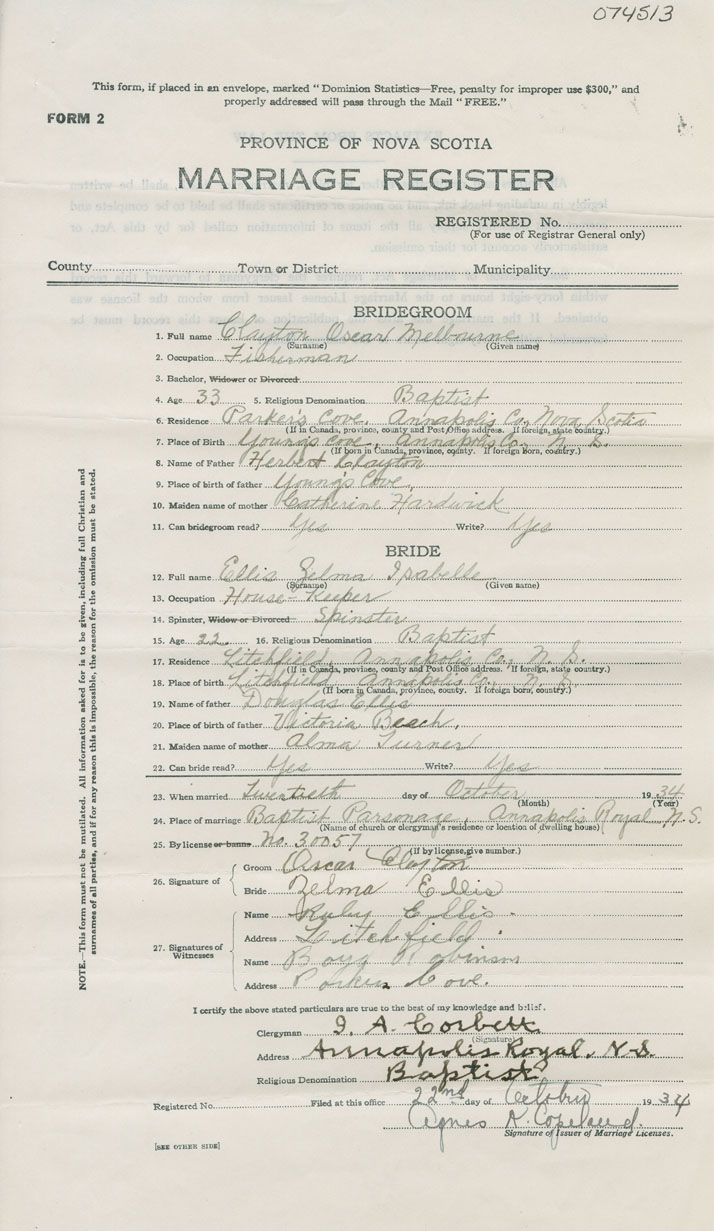 074513
This form, if placed in an envelope, marked "Dominion Statistics—Free, penalty for improper use $300," and
properly addressed will pass through the Mail "FREE."
FORM 2
PROVINCE OF NOVA SCOTIA
MARRIAGE REGISTER
REGISTERED No.
(For use of Registrar General only)
County Town or District Municipality
BRIDEGROOM
1. Full name Clayton Oscar Melbourne
(Surname) (Given name)
2. Occupation Fisherman
3. Bachelor, Widower or Divorced
4. Age 33 5. Religious Denomination Baptist
6. Residence Parker's Cove, Annapolis Co, Nova Scotia
(If in Canada, province, county and Post Office address. If foreign, state country.)
7. Place of Birth Young's Cove, Annapolis Co., N. S.
(If born in Canada, province, county. If foreign born, country.)
8. Name of Father Herbert Clayton
9. Place of birth of father Young's Cove,
10. Maiden name of mother Catherine Hardwick
11. Can bridegroom read? Yes Write? Yes
BRIDE
12. Full name Ellis Zelma Isabelle
(Surname) (Given name)
13. Occupation House-Keeper
14. Spinster, Widow or Divorced Spinster
15. Age 22 16. Religious Denomination Baptist
17. Residence Litchfield, Annapolis Co., N. S.
(If in Canada, province, county and Post Office address. If foreign, state country.)
18. Place of birth Litchfield, Annapolis Co., N. S.
(If born in Canada, province, county. If foreign born, country.)
19. Name of father Douglas Ellis
20. Place of birth of father Victoria Beach,
21. Maiden name of mother Alma Turner
22. Can bride read? Yes Write? Yes
23. When married Twentieth day of October 1934
(Month) (Year)
24. Place of marriage Baptist Parsonage, Annapolis Royal N.S.
(Name of church or clergyman's residence or location of dwelling house)
25. By license or banns No. 30057
(If by license, give number.)
26. Signature of
Groom Oscar Clayton
Bride Zelma Ellis
27. Signatures of Witnesses
Name Ruby Ellis
Address Litchfield
Name Robinson
Address Parkers Cove.
I certify the above stated particulars are true to the best of my knowledge and belief.
Clergyman I. A. Corbett
(Signature)
Address Annapolis Royal, N.S.
Religious Denomination Baptist
Registered No. Filed at this office 22nd day of October 1934
Agnes R. Copeland.
Signature of Issuer of Marriage Licenses.
[SEE OTHER SIDE]
NOTE.—This form must not be mutilated. All information asked for is to be given, including full Christian and
surnames of all parties, and if for any reason this is impossible, the reason for the omission must be stated.